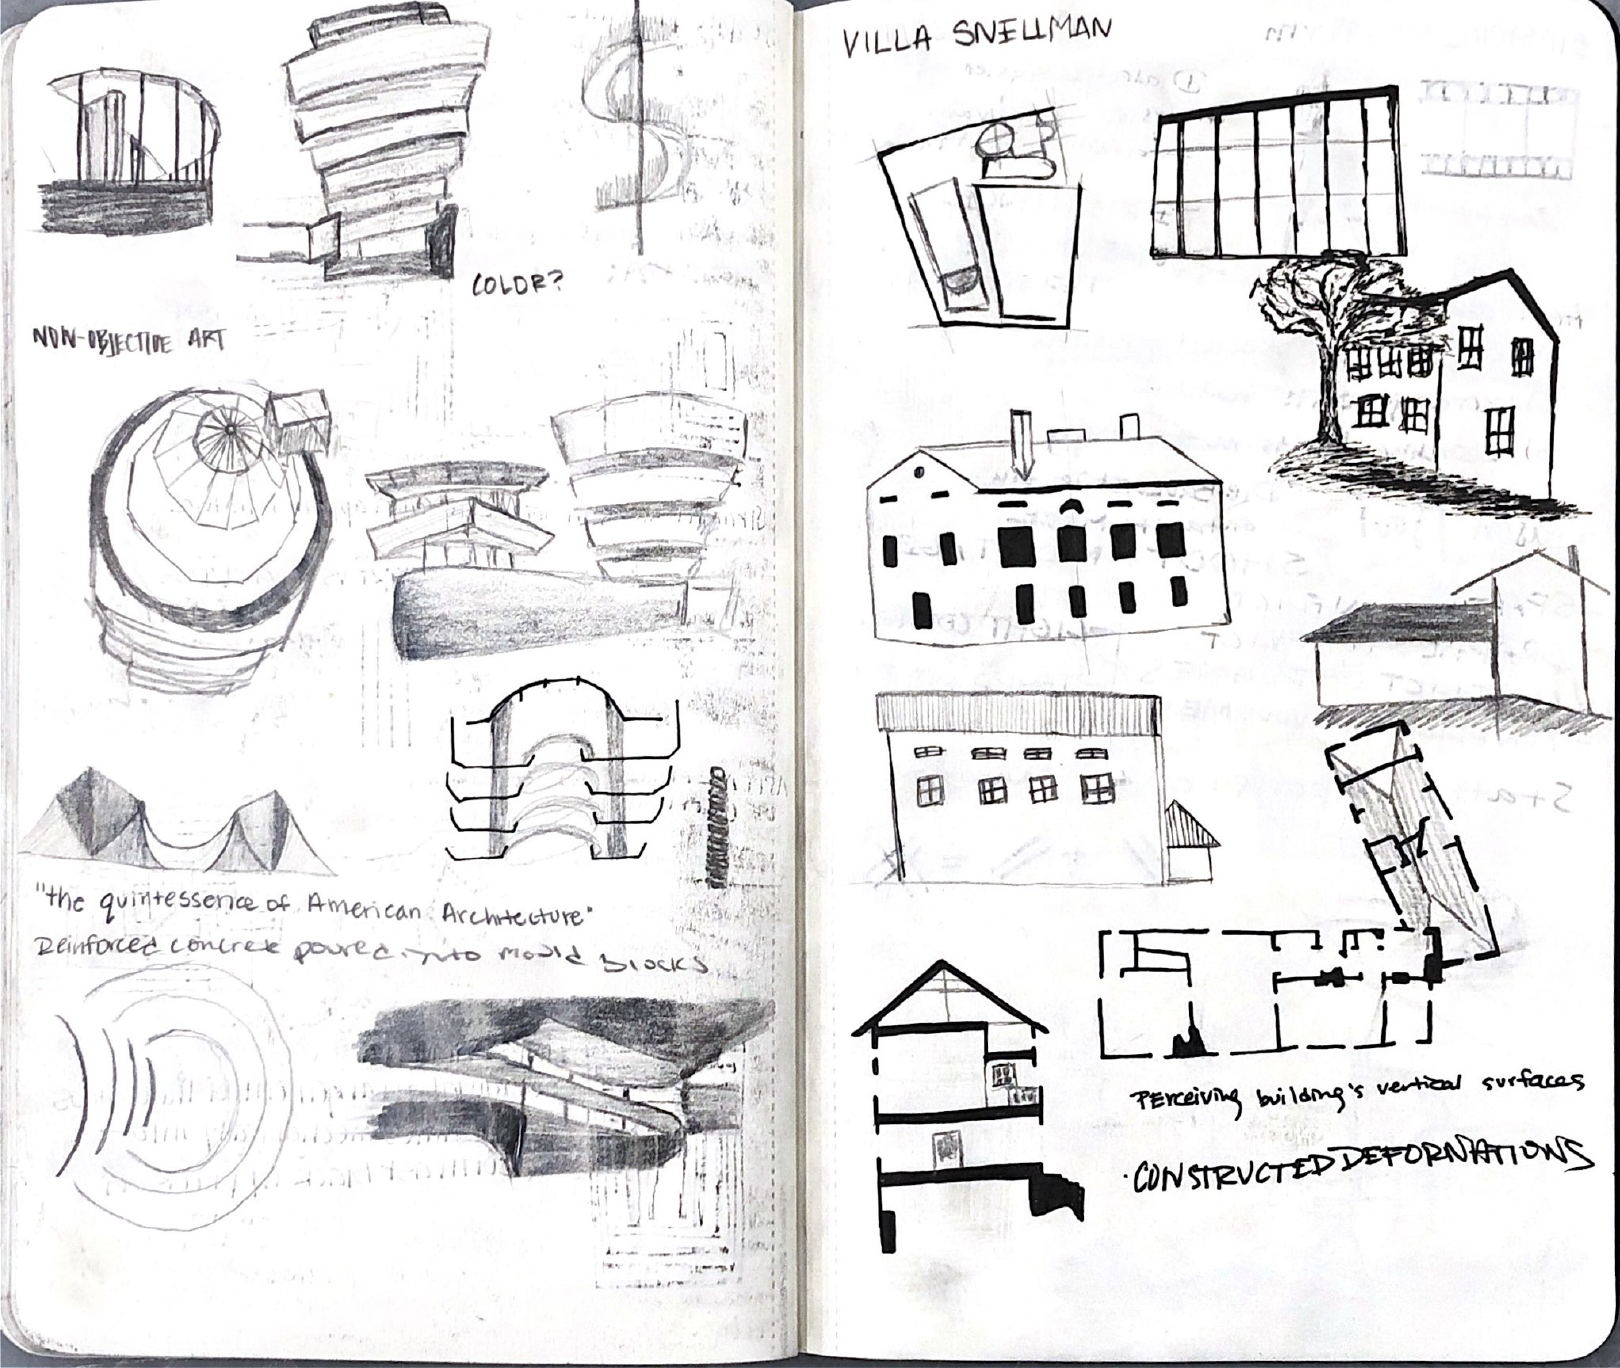 COLOR?
NON-OBJECTIVE ART
"the quintessence of American Architecture"
Reinforced concrete poured into mould blocks
VILLA SNELLMAN
Perceiving building's vertical surfaces
·CONSTRUCTED DEFORMATIONS